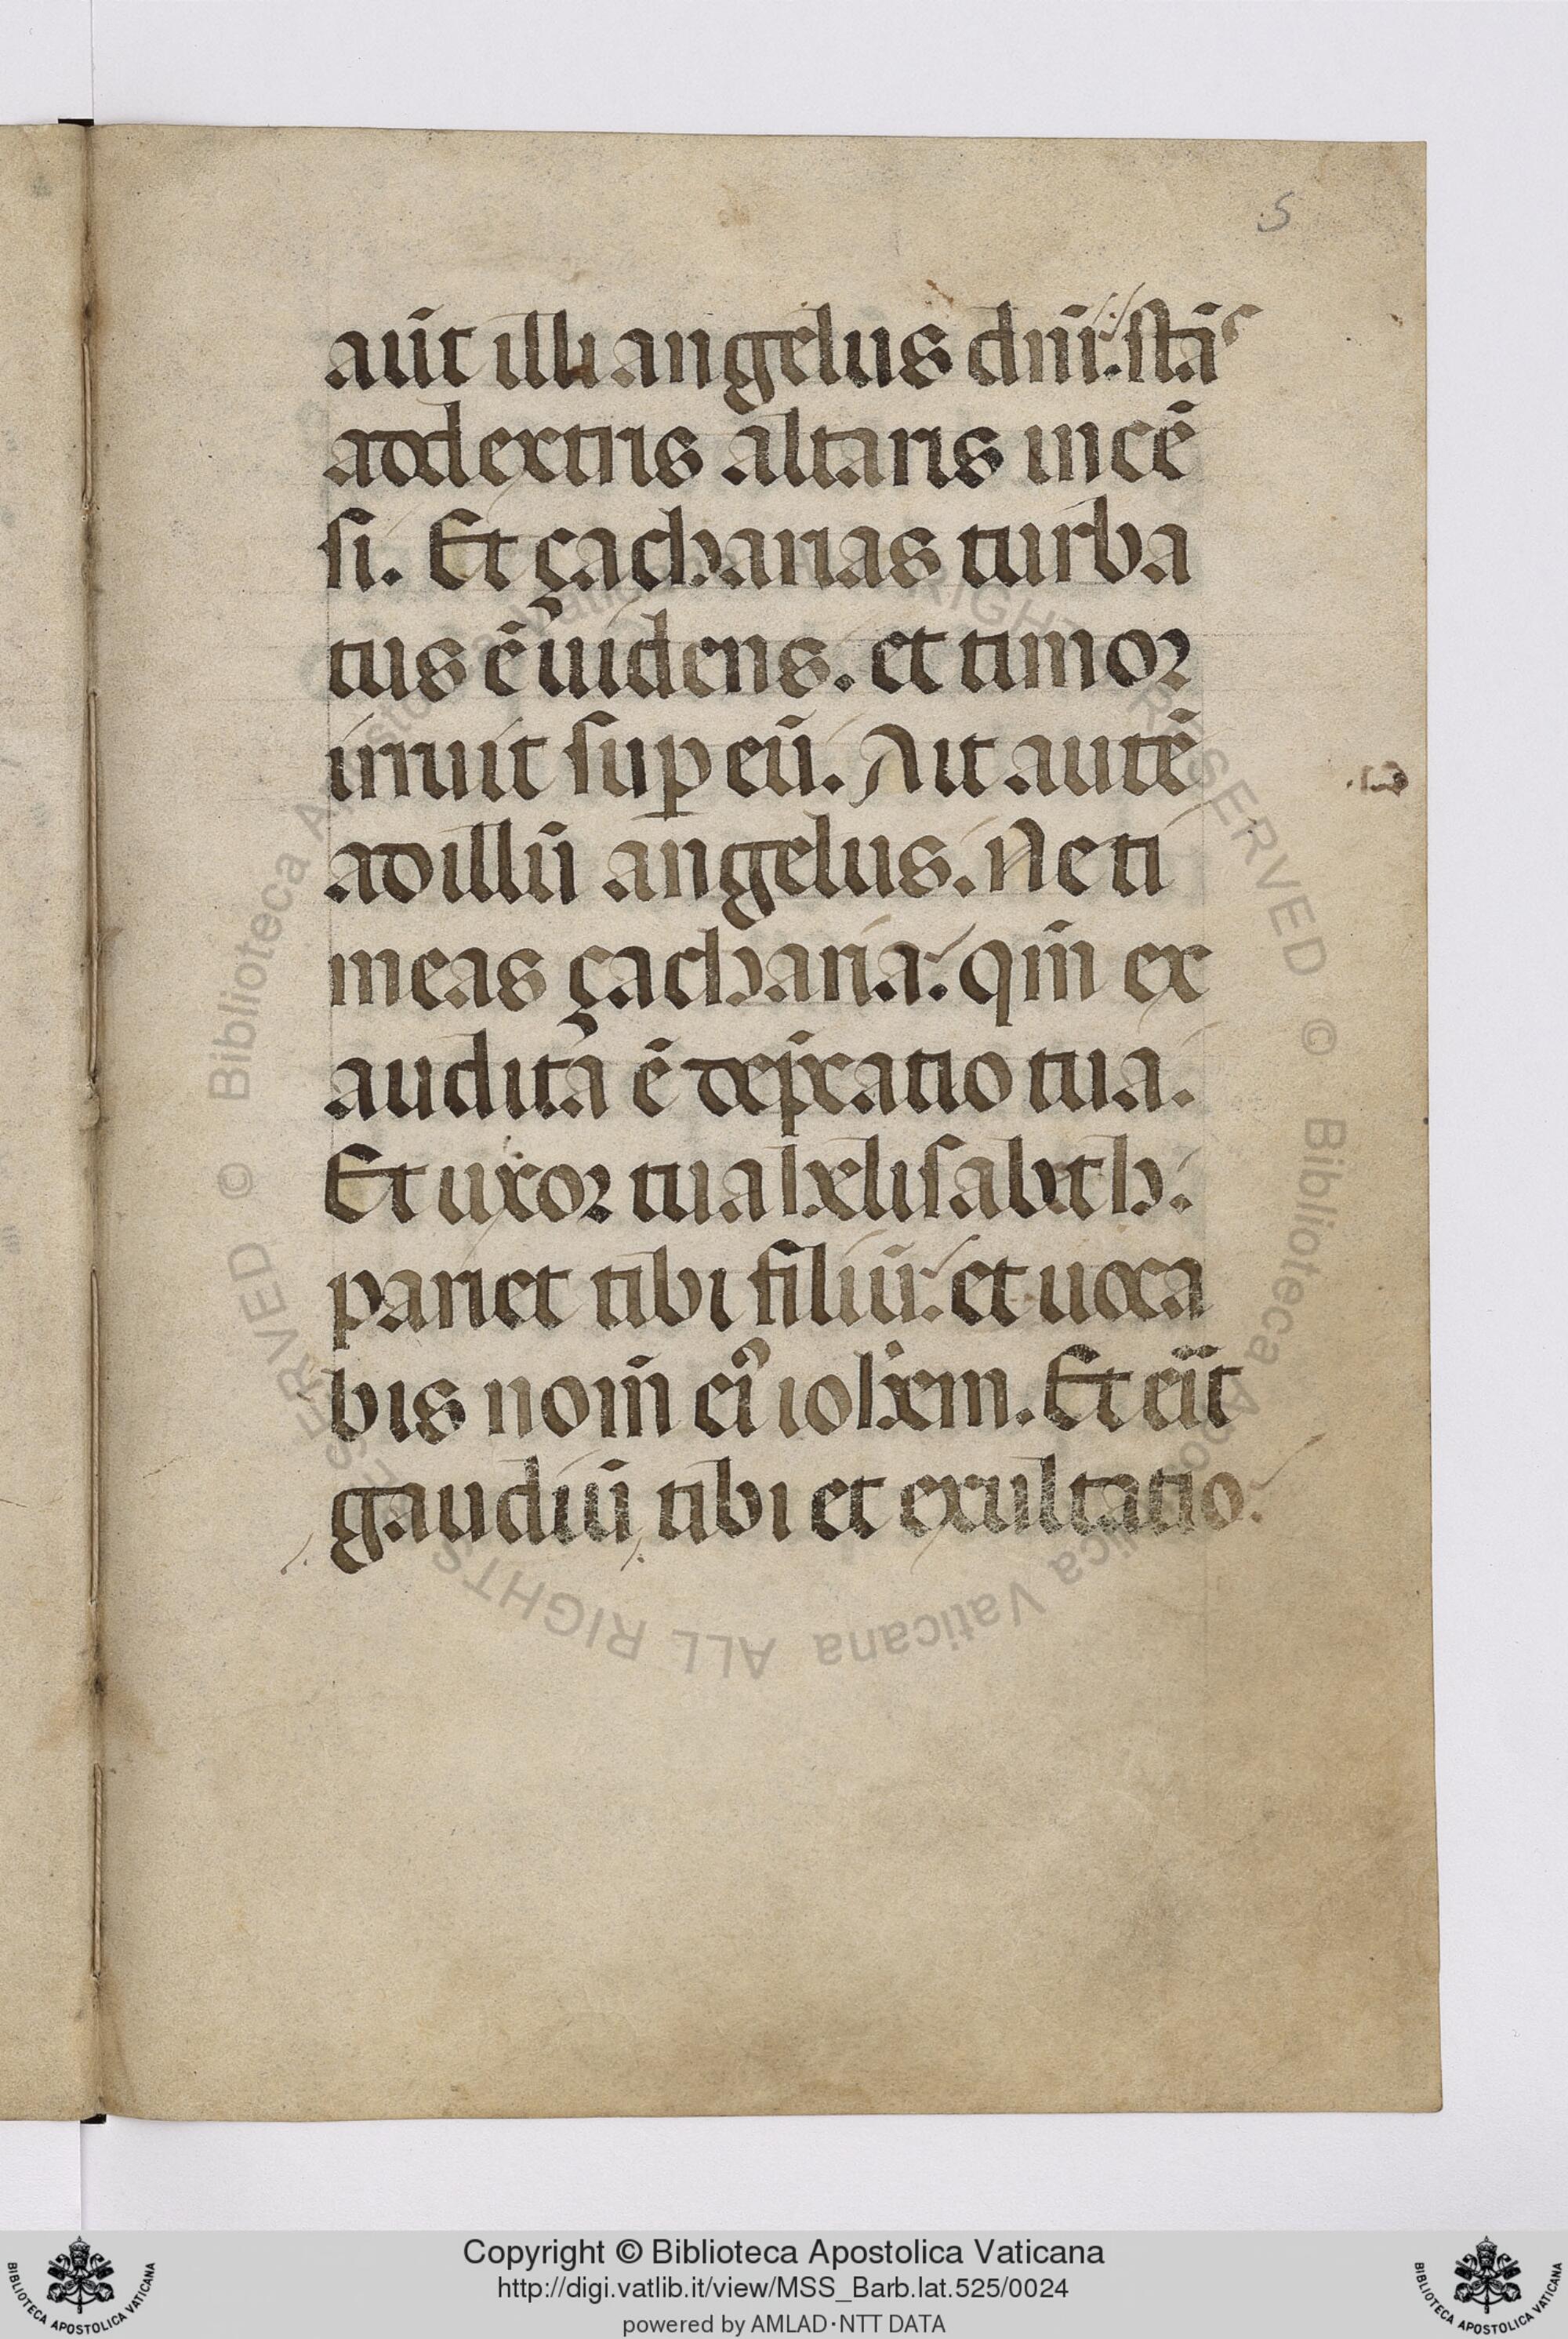 5
aūt illi angelus dn̄i: sta̅s
addextris altaris incē
si. Et çacharias turba
tus ē uidens. et timor
irruit suꝑ eū. Ait autē
ad illū angelus. Ne ti
meas çacharia: qm̄ ex
audita ē dep̄catio tua.
Et uxor tua helisabeth.
pariet tibi filiū: et uoca
bis nom̄ ei' iohem. Et eīt
gaudiū tibi et exultatio.
Copyright © Biblioteca Apostolica Vaticana
http://digi.vatlib.it/view/MSS_Barb.lat.525/0024
powered by AMLAD·NTT DATA
BIBLIOTECA APOSTOLICA VATICANA
BIBLIOTECA APOSTOLICA VATICANA
© Biblioteca Apostolica Vaticana ALL RIGHTS RESERVED © Biblioteca Apostolica Vaticana ALL RIGHTS RESERVED